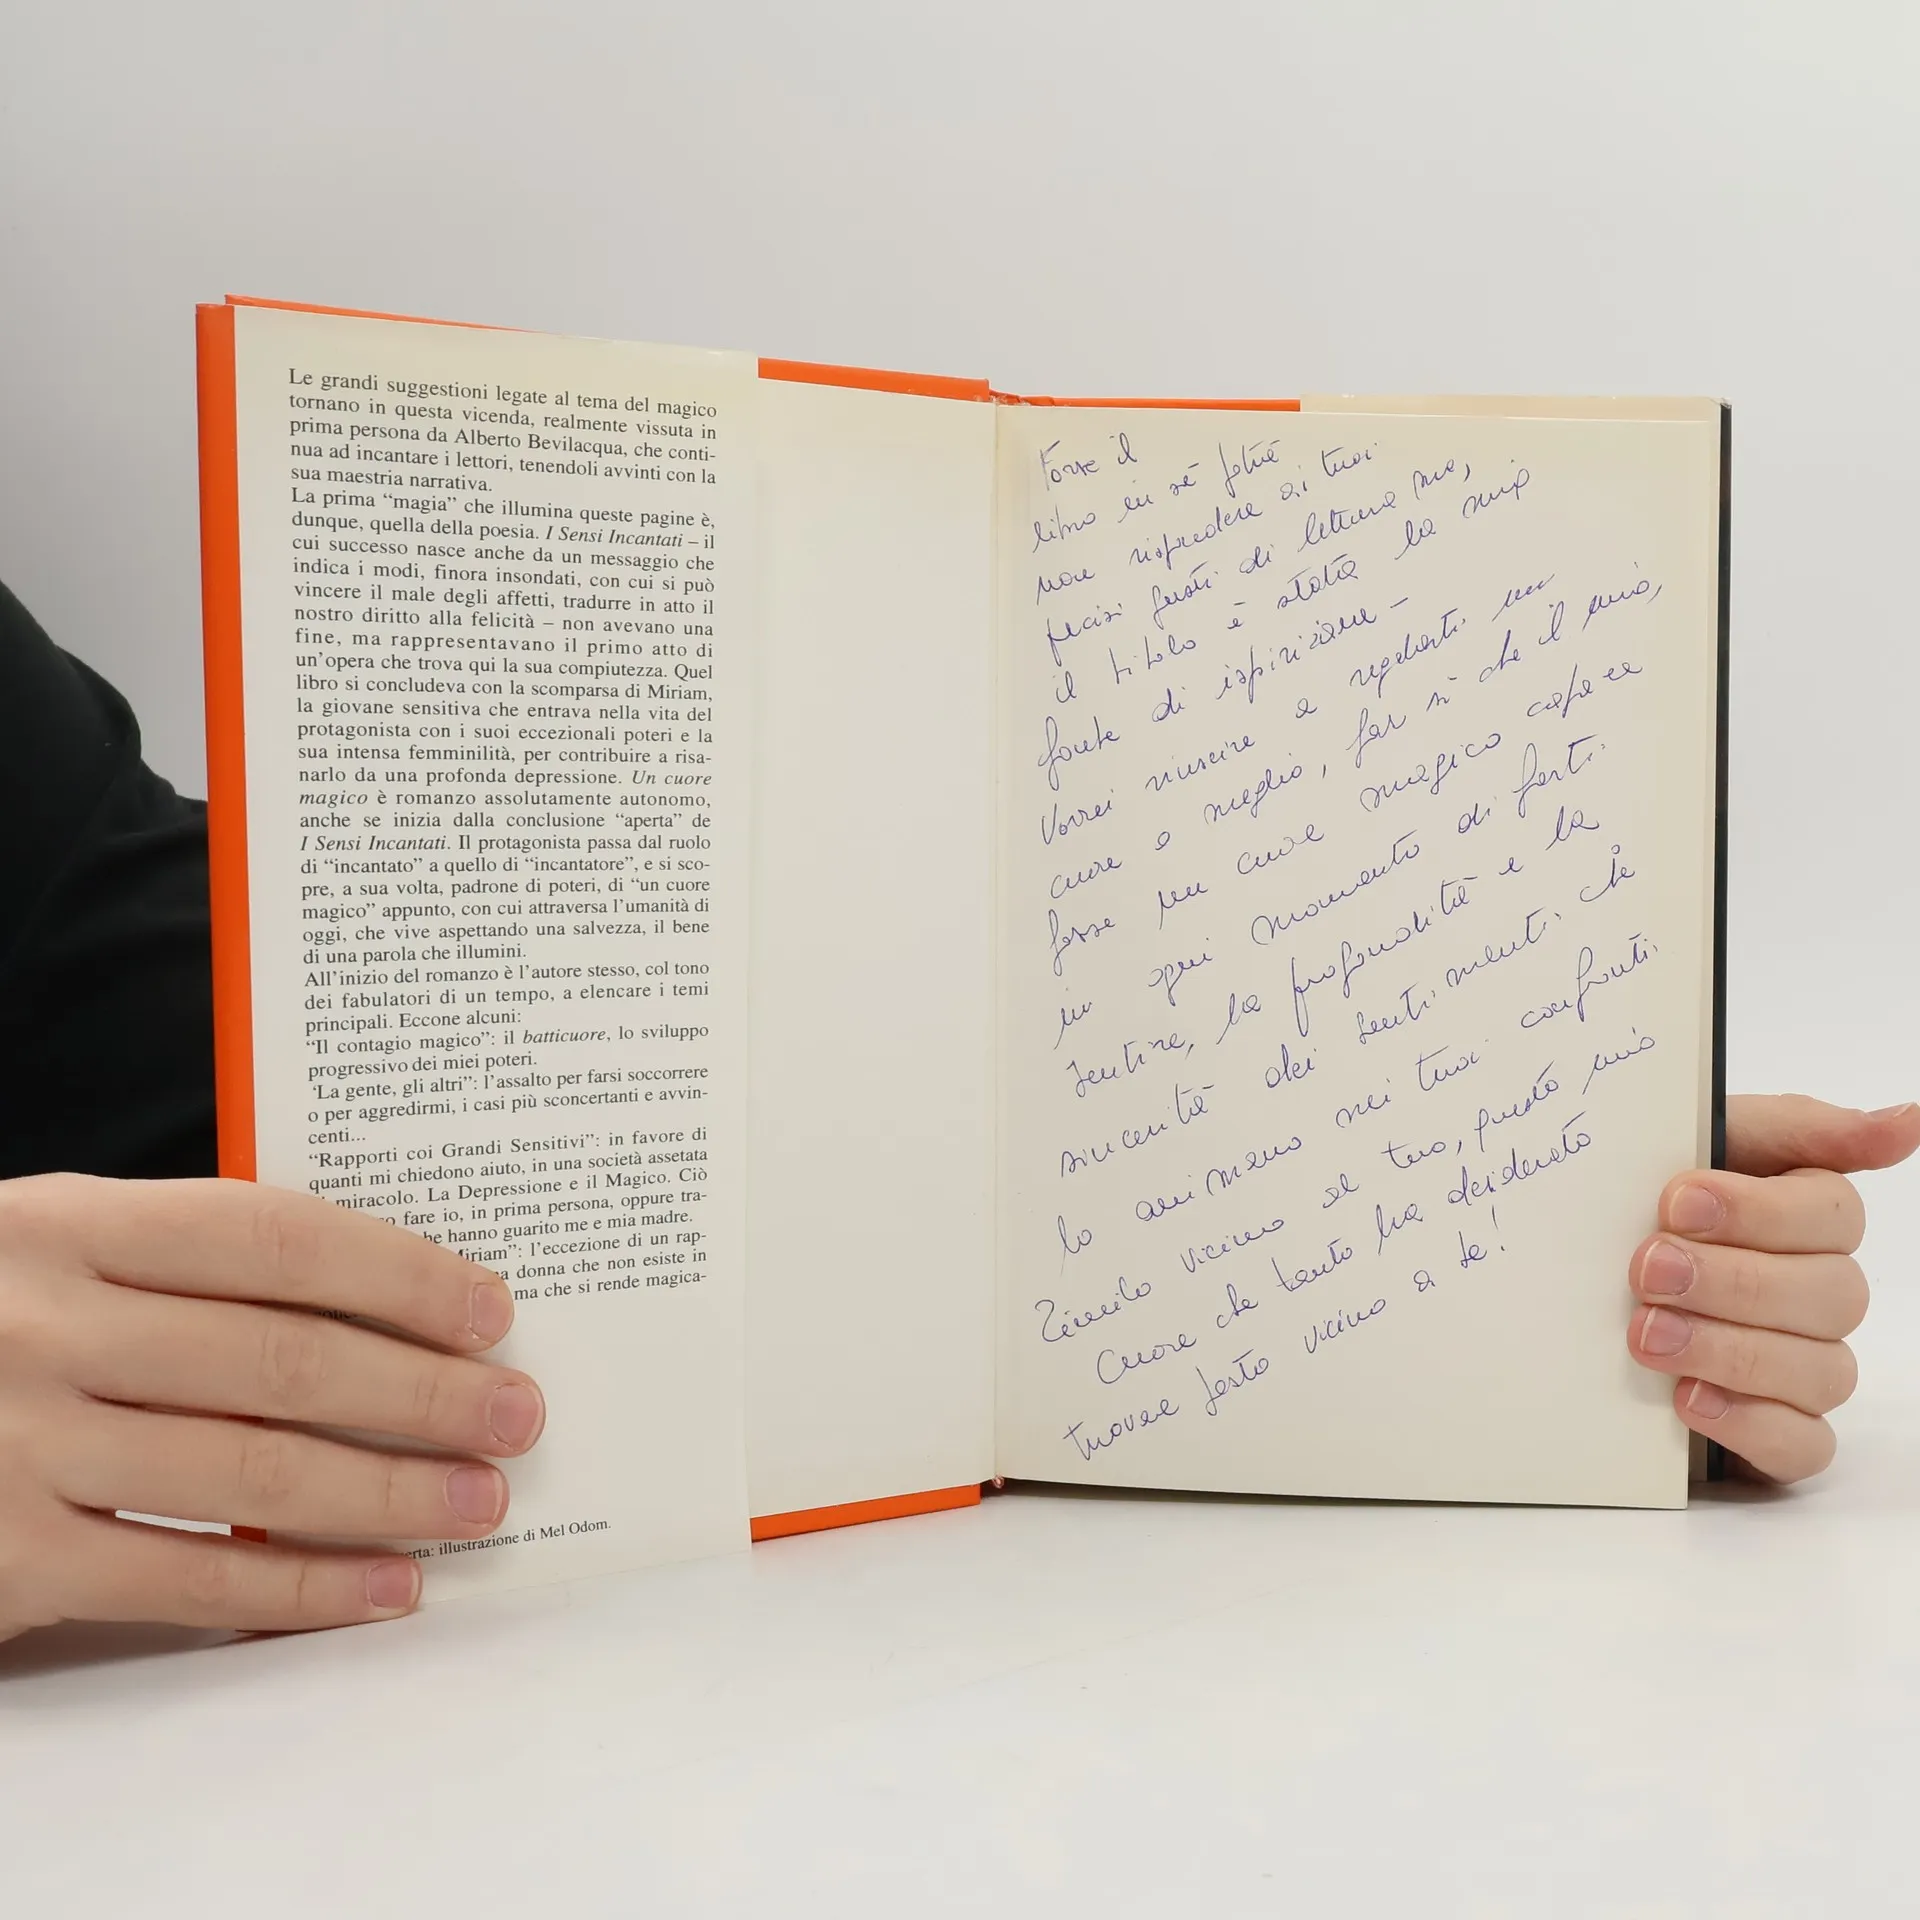 Le grandi suggestioni legate al tema del magico
tornano in questa vicenda, realmente vissuta in
prima persona da Alberto Bevilacqua, che conti-
nua ad incantare i lettori, tenendoli avvinti con la
sua maestria narrativa.
La prima “magia” che illumina queste pagine è,
dunque, quella della poesia. I Sensi Incantati – il
cui successo nasce anche da un messaggio che
indica i modi, finora insondati, con cui si può
vincere il male degli affetti, tradurre in atto il
nostro diritto alla felicità – non avevano una
fine, ma rappresentavano il primo atto di
un’opera che trova qui la sua compiutezza. Quel
libro si concludeva con la scomparsa di Miriam,
la giovane sensitiva che entrava nella vita del
protagonista con i suoi eccezionali poteri e la
sua intensa femminilità, per contribuire a risa-
narlo da una profonda depressione. Un cuore
magico è romanzo assolutamente autonomo,
anche se inizia dalla conclusione “aperta” de
I Sensi Incantati. Il protagonista passa dal ruolo
di “incantato” a quello di “incantatore”, e si sco-
pre, a sua volta, padrone di poteri, di “un cuore
magico” appunto, con cui attraversa l’umanità di
oggi, che vive aspettando una salvezza, il bene
di una parola che illumini.
All’inizio del romanzo è l’autore stesso, col tono
dei fabulatori di un tempo, a elencare i temi
principali. Eccone alcuni:
“Il contagio magico”: il batticuore, lo sviluppo
progressivo dei miei poteri.
‘La gente, gli altri”: l’assalto per farsi soccorrere
o per aggredirmi, i casi più sconcertanti e avvin-
centi...
“Rapporti coi Grandi Sensitivi”: in favore di
quanti mi chiedono aiuto, in una società assetata
miracolo. La Depressione e il Magico. Ciò
fare io, in prima persona, oppure tra-
he hanno guarito me e mia madre.
Miriam”: l’eccezione di un rap-
donna che non esiste in
ma che si rende magica-
erta: illustrazione di Mel Odom.
Forse il
libro in sé potrà
non rispondere ai tuoi
precisi gusti di lettura ma,
il titolo è stata la mia
fonte di ispirazione -
Vorrei riuscire a regalarti un
cuore o meglio, far sì che il mio,
fosse un cuore magico capace
in ogni momento di farti
sentire, la profondità e la
sincerità dei sentimenti che
lo animano nei tuoi confronti.
vicino al tuo, questo mio
Cuore che tanto ha desiderato
trovare posto vicino a te!